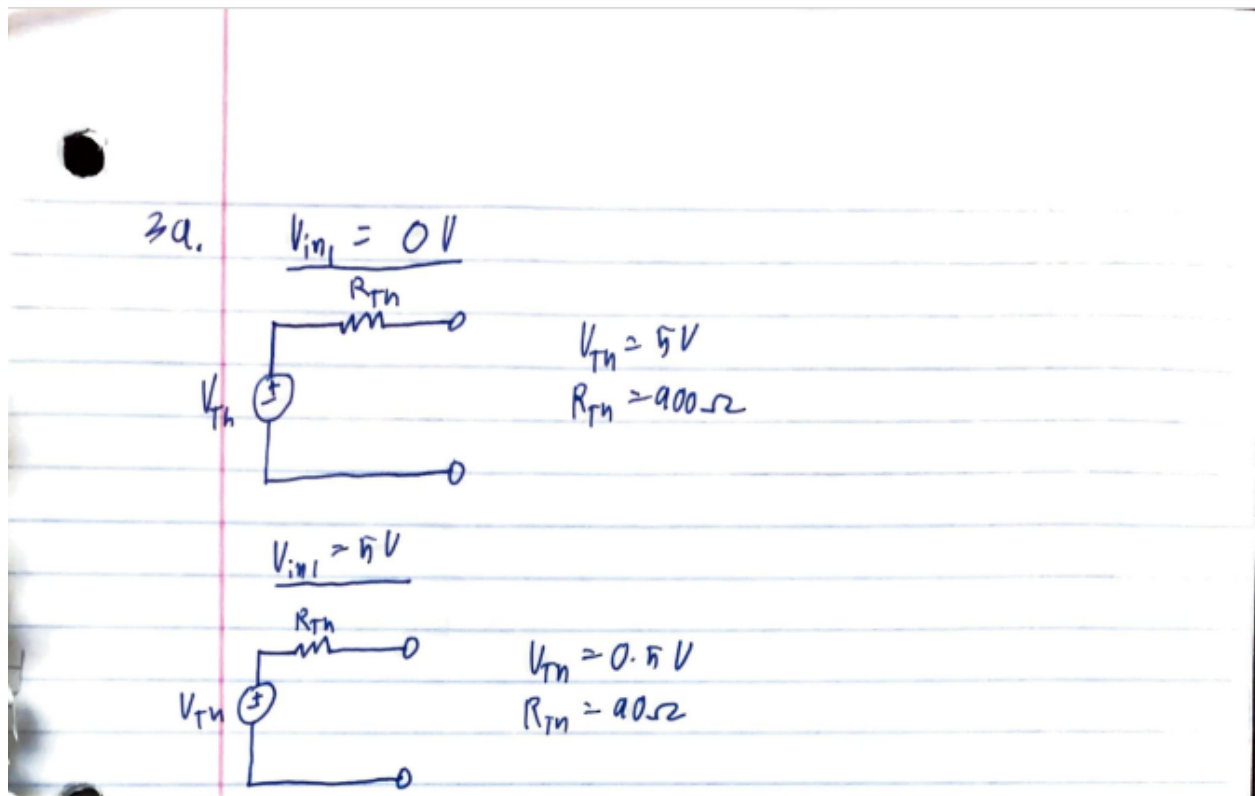 3a. Vin1 = 0V
RTh
VTh
VTh = 5V
RTh = 900Ω
Vin1 = 5V
RTh
VTh
VTh = 0.5V
RTh = 90Ω